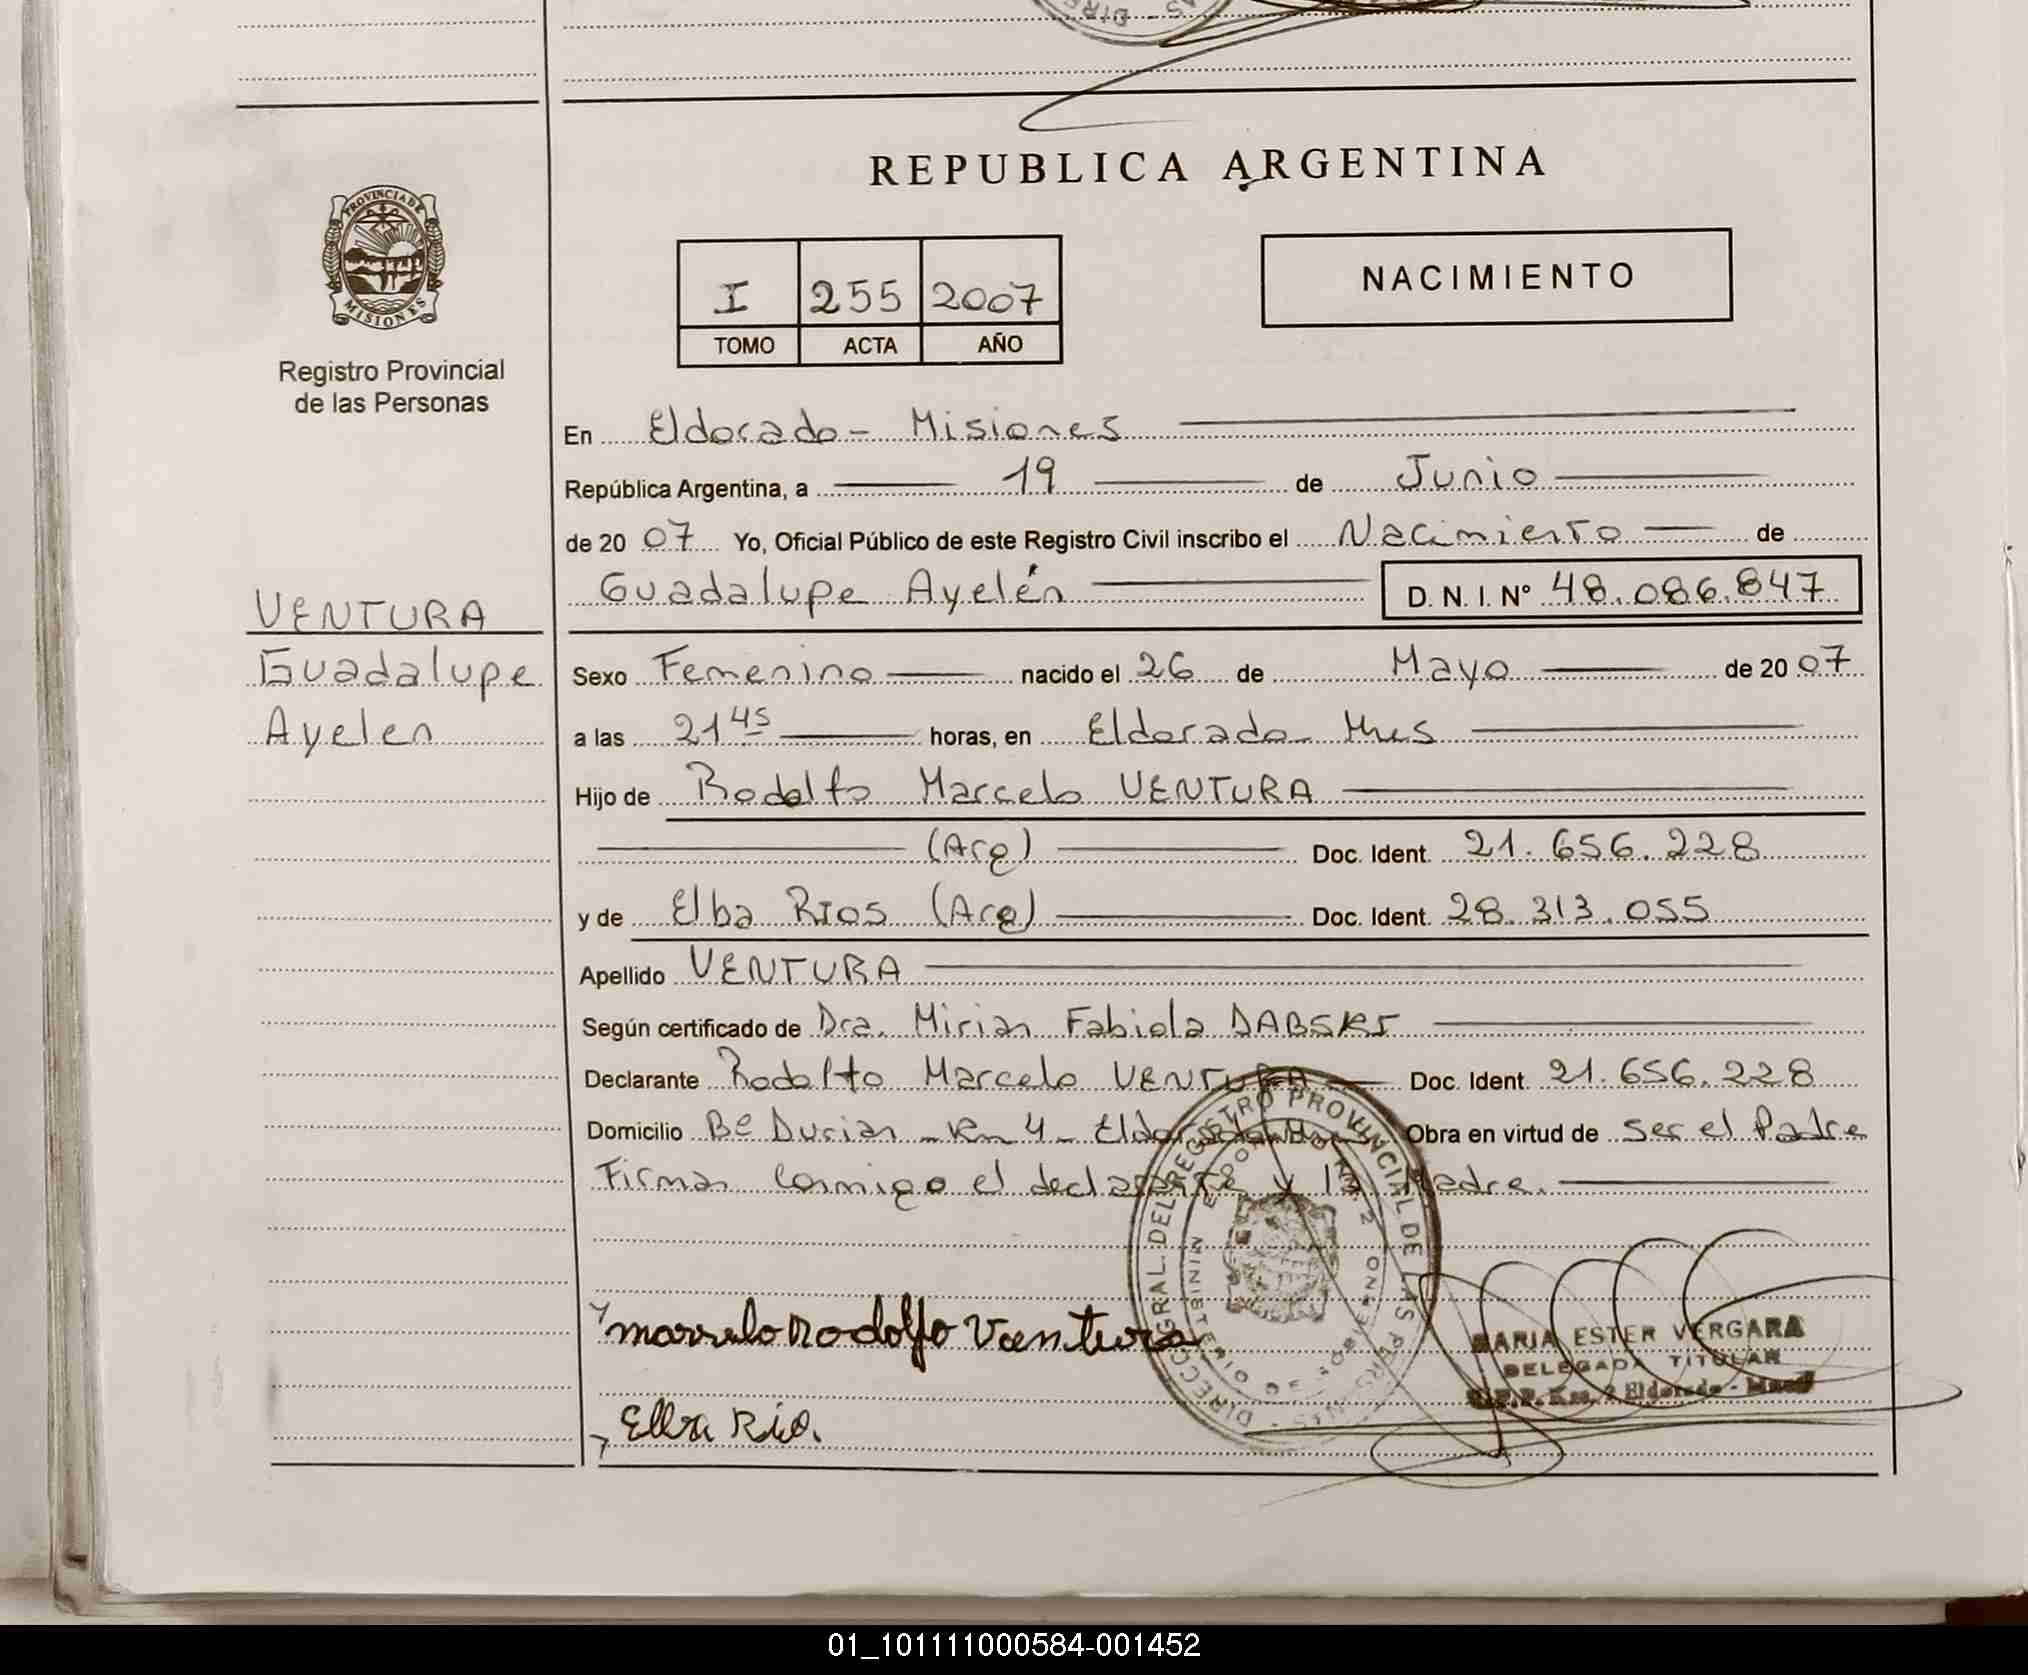 REPUBLICA ARGENTINA
PROVINCIA DE
MISIONES
Registro Provincial
de las Personas
I 255 2007
TOMO ACTA AÑO
NACIMIENTO
En Eldorado - Misiones
República Argentina, a 19 de Junio
de 20 07 Yo, Oficial Público de este Registro Civil inscribo el Nacimiento de
Guadalupe Ayelén D. N. I. Nº 48.086.847
VENTURA
Guadalupe
Ayelen
Sexo Femenino nacido el 26 de Mayo de 20 07
a las 21 45 horas, en Eldorado Mnes
Hijo de Rodolfo Marcelo VENTURA
(Arg) Doc. Ident. 21.656.228
y de Elba RIOS (Arg) Doc. Ident. 28.313.055
Apellido VENTURA
Según certificado de Dra. Mirian Fabiola DABSKI
Declarante Rodolfo Marcelo VENTURA Doc. Ident. 21.656.228
Domicilio Bº Durian - Km 4 - Eldorado Obra en virtud de ser el Padre
Firman Conmigo el declarante y la Madre.
DIRECC. GRAL. DEL REGISTRO PROVINCIAL DE LAS PERSONAS
MINISTERIO DE GOBIERNO
marcelo Rodolfo Ventura
MARIA ESTER VERGARA
DELEGADA TITULAR
R.P.P. Km. 2 Eldorado - Mnes
Elba Rio.
01_101111000584-001452